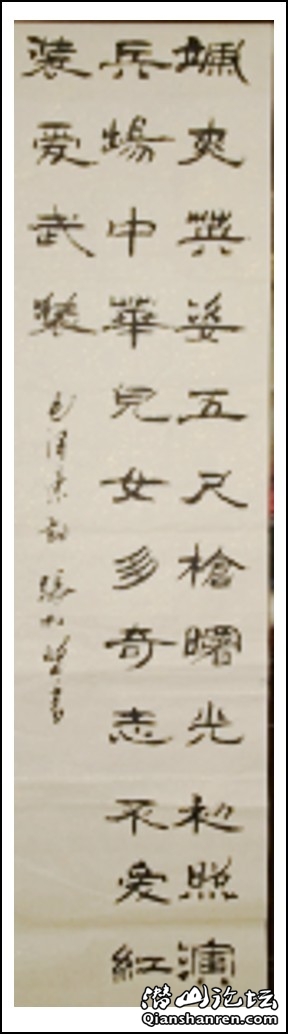 颯爽英姿五尺槍曙光初照演
兵場中華兒女多奇志不爱紅
装爱武装
毛澤東詞 張書
潜山论坛
Qianshanren.com